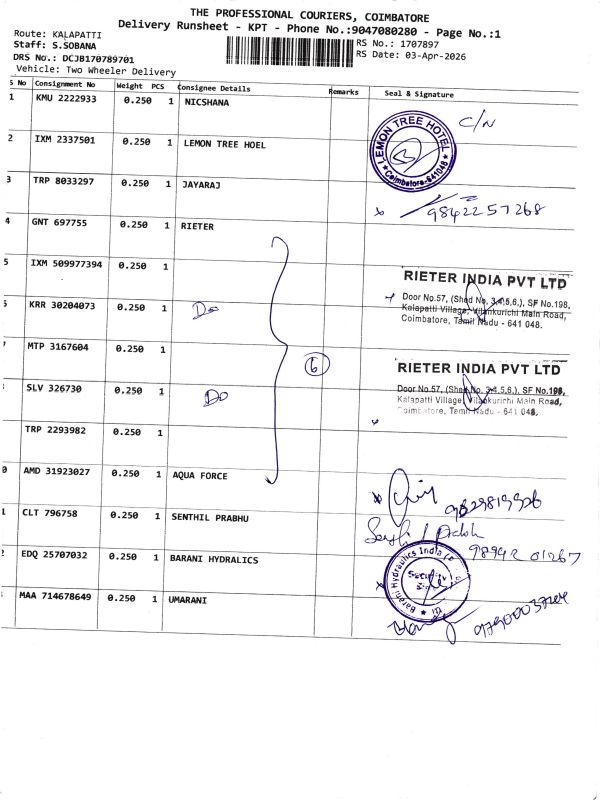 THE PROFESSIONAL COURIERS, COIMBATORE
Delivery Runsheet - KPT - Phone No.:9047080280 - Page No.:1
Route: KALAPATTI
Staff: S.SOBANA
RS No.: 1707897
DRS No.: DCJB170789701
RS Date: 03-Apr-2026
Vehicle: Two Wheeler Delivery
S No Consignment No Weight PCS Consignee Details Remarks Seal & Signature
1 KMU 2222933 0.250 1 NICSHANA C/N
2 IXM 2337501 0.250 1 LEMON TREE HOEL
LEMON TREE HOTEL
Coimbatore-641048
3 TRP 8033297 0.250 1 JAYARAJ
9842257268
4 GNT 697755 0.250 1 RIETER
5 IXM 509977394 0.250 1
RIETER INDIA PVT LTD
Door No.57, (Shed No. 3,4,5,6,), SF No.198,
Kalapatti Village, Vilankurichi Main Road,
Coimbatore, Tamil Nadu - 641 048.
KRR 30204073 0.250 1 Do
MTP 3167604 0.250 1
6
RIETER INDIA PVT LTD
Door No.57, (Shed No. 3,4,5,6,), SF No.198,
Kalapatti Village, Vilankurichi Main Road,
Coimbatore, Tamil Nadu - 641 048.
SLV 326730 0.250 1 Do
TRP 2293982 0.250 1
0 AMD 31923027 0.250 1 AQUA FORCE
1 CLT 796758 0.250 1 SENTHIL PRABHU
98942 01267
2 EDQ 25707032 0.250 1 BARANI HYDRALICS
Barani Hydraulics India (P) Ltd
Security
MAA 714678649 0.250 1 UMARANI